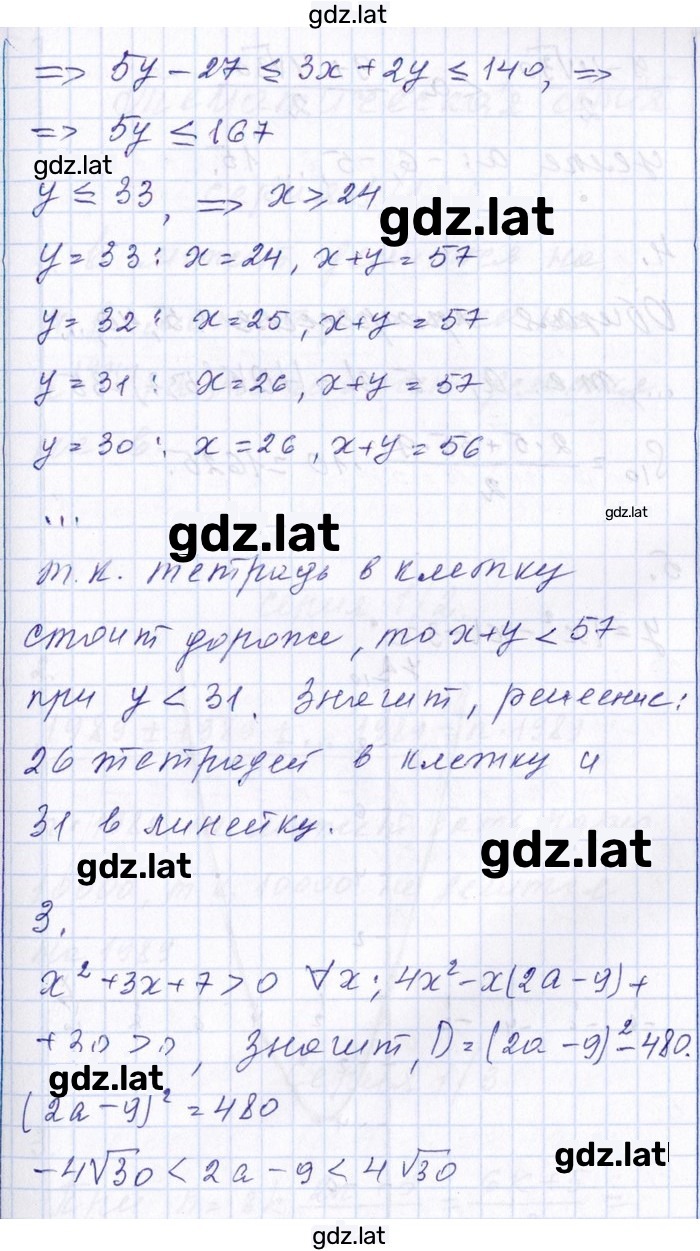 gdz.lat
=> 5y - 27 ≤ 3x + 2y ≤ 140, =>
=> 5y ≤ 167
gdz.lat
y ≤ 33, => x ⩾ 24
gdz.lat
y = 33: x = 24, x+y = 57
y = 32: x = 25, x+y = 57
y = 31: x = 26, x+y = 57
y = 30: x = 26, x+y = 56
...
gdz.lat
gdz.lat
т.к. тетрадь в клетку
стоит дороже, то x+y < 57
при y < 31. Значит, решение:
26 тетрадей в клетку и
31 в линейку.
gdz.lat
gdz.lat
3.
x² + 3x + 7 > 0 ∀x; 4x² - x(2a - 9) +
+ 30 > 0, значит, D = (2a - 9)² - 480.
gdz.lat
(2a - 9)² = 480
-4√30 < 2a - 9 < 4√30
gdz.lat
gdz.lat